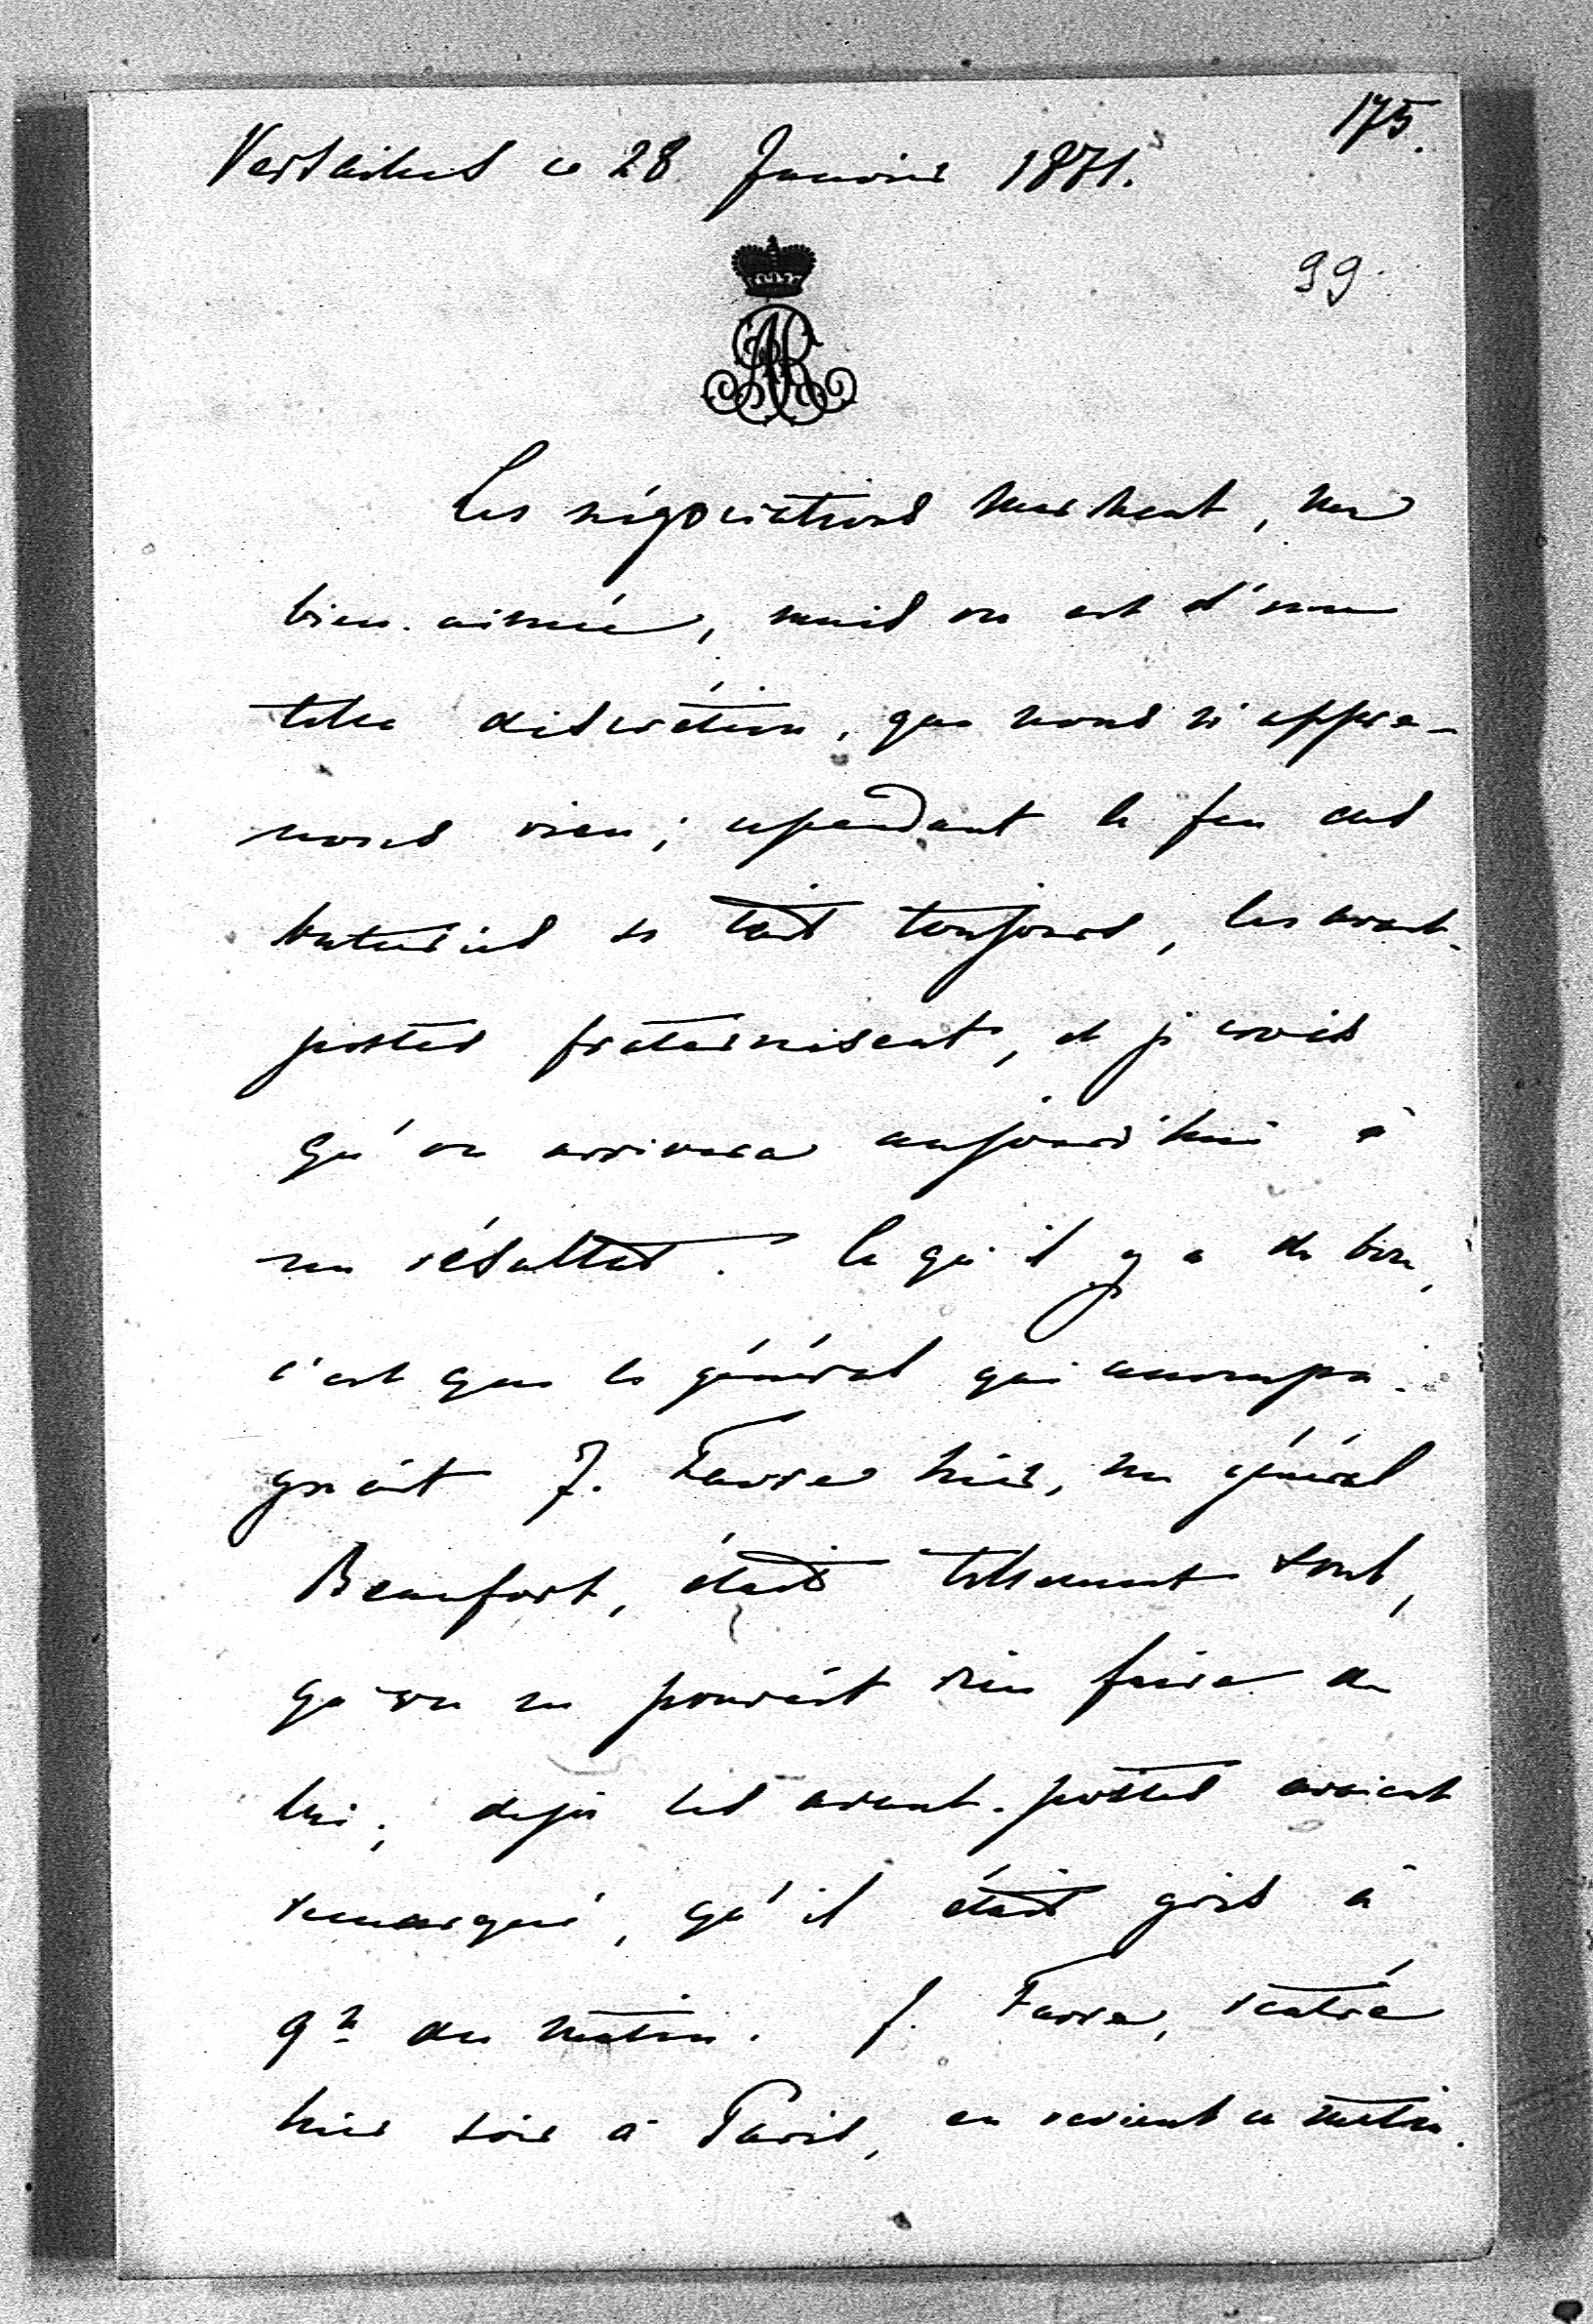 175.
Versailles ce 28 Janvier 1871.
99.
AR
Les négociations marchent, ma
bien-aimée, mais on est d'une
telle discrétion, que nous n'appre-
nons rien; cependant le feu des
batteries se tait toujours, les avant-
postes fraternisent, et je crois
qu'on arrivera aujourd'hui à
un résultat. Ce qu'il y a de bon,
c'est que le général qui accompa-
gnait J. Favre hier, un général
Beaufort, était tellement soul,
qu'on ne pouvait rien faire de
lui; déjà les avant-postes avaient
remarqué, qu'il était gris à
9h du matin. J. Favre, rentré
hier soir à Paris, en revient ce matin.